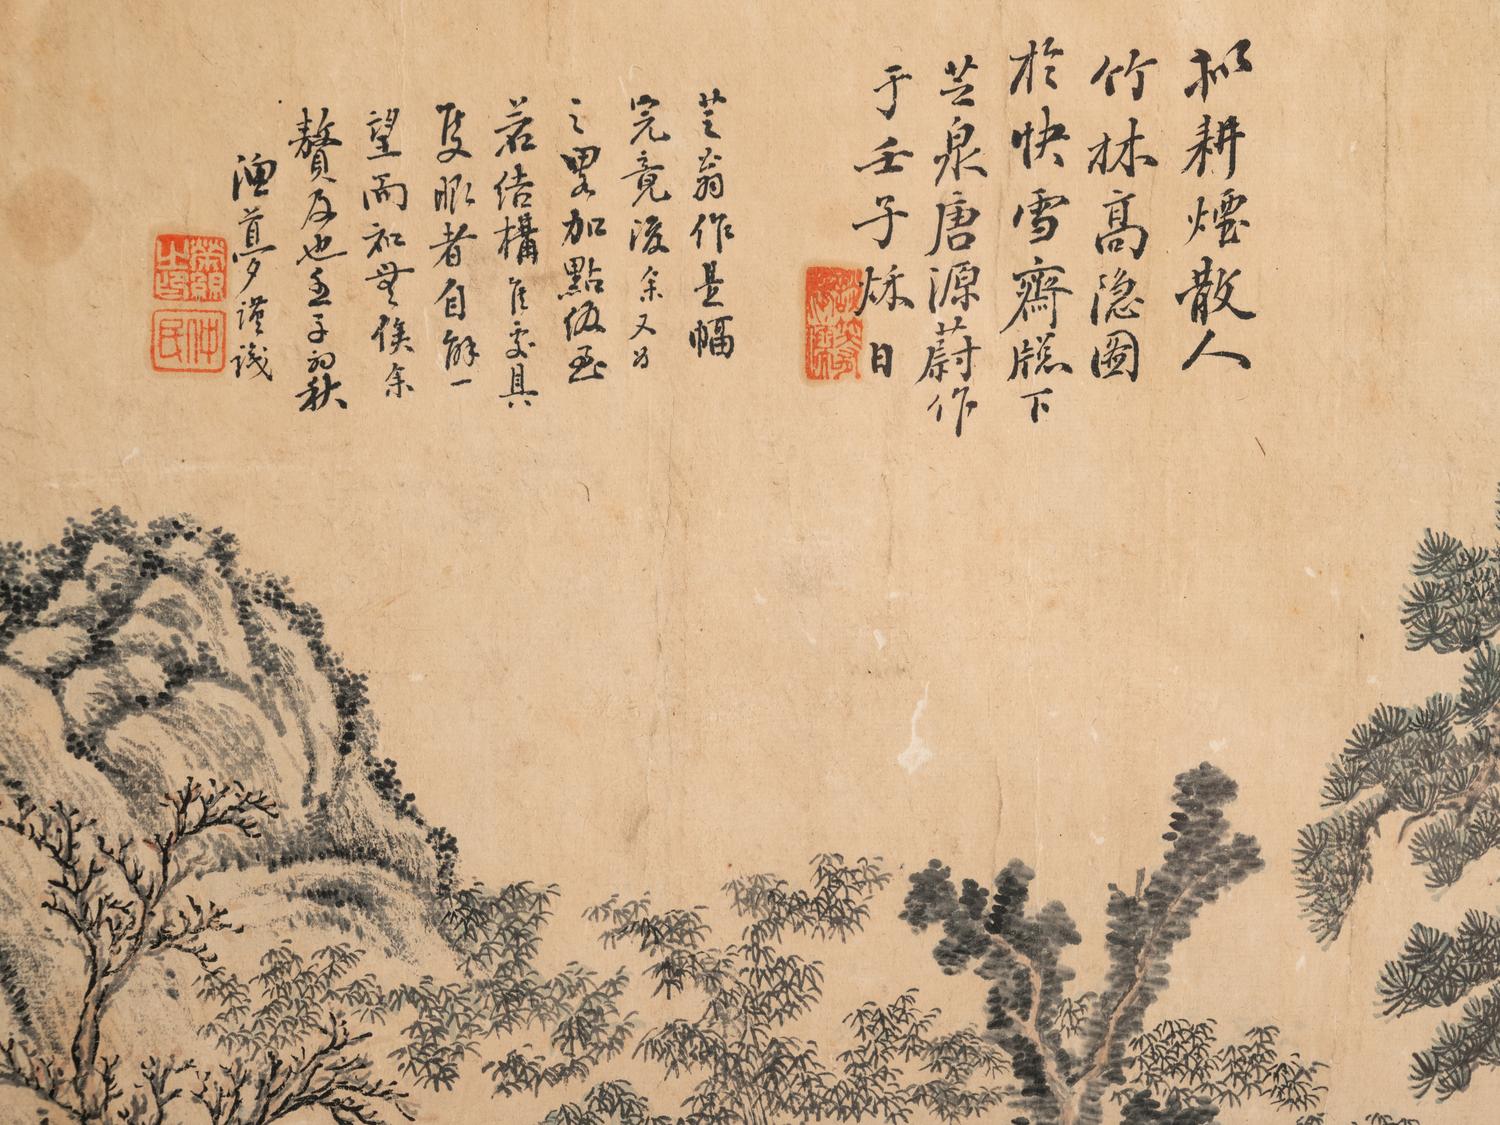 拟耕煙散人
竹林高隐圖
於快雪齋牕下
芝泉唐源蔚作
于壬子秌日
芝翁作是幅
完竟後余又为
之畧加點綴至
若結構位置具
隻眼者自能一
望而知無俟余
贅及也壬子初秋
漁夢謹識